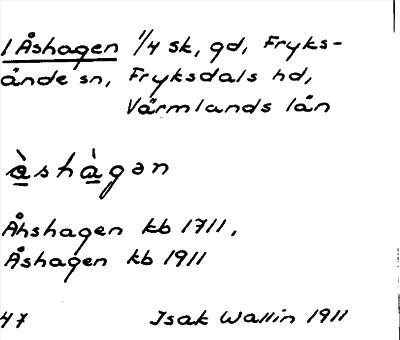 1 Åshagen 1/4 sk, gd, Fryks-
ände sn, Fryksdals hd,
Värmlands län
àshàgən
Åhshagen kb 1711,
Åshagen kb 1911
47 Isak Wallin 1911